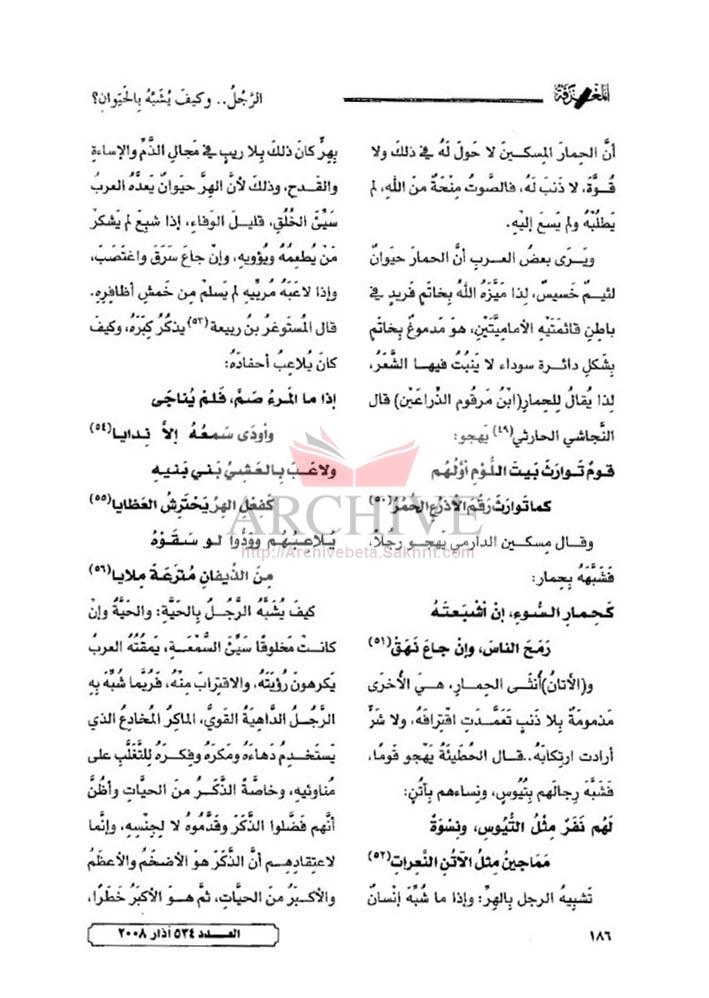 المعرفة
الرَّجُلُ.. وكيفَ يُشَبَّهُ بِالحَيَوانِ؟
أنَّ الحِمارَ المِسكينَ لا حَولَ لَهُ في ذلكَ ولا
قُوَّةَ، لا ذَنبَ لَهُ، فالصَّوتُ مِنْحَةٌ منَ اللهِ، لم
يَطلُبْهُ ولم يَسعَ إليْهِ.
ويَرَى بعضُ العربِ أنَّ الحمارَ حيَوانٌ
لئيمٌ خَسيسٌ، لِذا مَيَّزَهُ اللهُ بِخاتَمٍ فريدٍ في
باطِنِ قائمَتَيْهِ الأماميَّتَيْنِ، هوَ مَدموغٌ بِخاتَمٍ
بِشَكلِ دائرةٍ سوداءَ لا يَنبُتُ فيهـا الشَّعَرُ،
لِذا يُقالُ لِلحِمارِ(ابْنُ مَرقومِ الذِّراعَيْنِ) قال
النَّجاشي الحارثي(٤٩) يَهجو:
قـومٌ تَـوارَثَ بَيـتَ اللُّـؤمِ أوَّلُهُم
كَما تَوارَثَ رَقْمَ الأذرُعِ الحُمُرُ(٥٠)
وقـال مِسكينُ الدارِمي يَهجـو رجلاً،
فَشَبَّهَهُ بِحِمار:
كَحِمارِ السُّوءِ، إنْ أشْبَعتَـهُ
رَمَحَ الناسَ، وإنْ جاعَ نَهَقْ(٥١)
و(الأتانُ)أُنثَـى الحِمارِ، هـيَ الأُخرَى
مَذمومَةٌ بِلا ذَنبٍ تَعَمَّدَتِ اقتِرافَهُ، ولا شَرٍّ
أرادَت ارتكابَهُ..قـال الحُطَيئَةُ يَهْجو قومًا،
فَشَبَّهَ رِجالَهم بِتُيُوسٍ، ونِساءَهم بِأتُنٍ:
لَهُم نَفَرٌ مِثْلُ التُّيُوسِ، ونِسْوَةٌ
مَمَاجينُ مِثلُ الآتُنِ النَّعِراتِ(٥٢)
تَشبيهُ الرجلِ بِالهِرِّ: وإذا ما شُبِّهَ إنْسانٌ
بِهِرٍّ كانَ ذلكَ بِلا ريبٍ في مَجالِ الذَّمِّ والإساءةِ
والقَـدحِ، وذلكَ لأنَّ الهِرَّ حيَوانٌ يَعدُّهُ العربُ
سَيِّئَ الخُلُقِ، قليـلَ الوَفاءِ، إذا شَبِعَ لم يَشكُرْ
مَنْ يُطعِمُهُ ويُؤويهِ، وإنْ جاعَ سَرَقَ واغتَصَبَ،
وإذا لاعَبَهُ مُربِّيهِ لم يَسلَمْ مِن خَمشِ أظافِرِهِ.
قال المُستَوغرُ بنُ ربيعة(٥٣)يذكُرُ كِبَرَهُ، وكيفَ
كانَ يُلاعِبُ أحفادَهُ:
إذا ما المَـرءُ صَمَّ، فَلَمْ يُناجَى
وأودَى سَمعُهُ إلاَّ نِـدايا(٥٤)
ولاعَـبَ بِـالعَشِيِّ بَنـي بَنيـهِ
كَفِعْلِ الهِرِّ يَحْتَرِشُ العَظايا(٥٥)
يُـلاعِبُهُـم ووَدُّوا لـو سَقَـوْهُ
مِـنَ الذِّيفانِ مُترَعَـةً مِلايا(٥٦)
كيفَ يُشَبَّهُ الرَّجُـلُ بِالحَيَّةِ: والحَيَّةُ وإنْ
كانَـتْ مَخلوقًا سَيِّئَ السُّمْعَـةِ، يَمقُتُهُ العربُ
يَكرهونَ رُؤيَتَهُ، والاقتِرابَ مِنْهُ، فَرُبَّما شُبِّهَ بِهِ
الرَّجُـلُ الدَّاهِيَةُ القَويُّ، الماكِرُ المُخادِعُ الذي
يَستَخدِمُ دَهاءَهُ ومَكرَهُ وفِكرَهُ لِلتَّغَلُّبِ على
مُناوِئيهِ، وخاصَّةً الذَّكَـرُ منَ الحَيَّاتِ وأظُنُّ
أنَّهم فَضَّلوا الذَّكَرَ وقَدَّموهُ لا لِجِنْسِهِ، وإنَّما
لاعتِقادِهِـم أنَّ الذَّكَرَ هوَ الأضخَمُ والأعظَمُ
والأكبَـرُ منَ الحَيَّاتِ، ثمَّ هـوَ الأكبَرُ خَطَرًا،
ARCHIVE
http://Archivebeta.Sakhrit.com
١٨٦
العـــدد ٥٣٤ آذار ٢٠٠٨